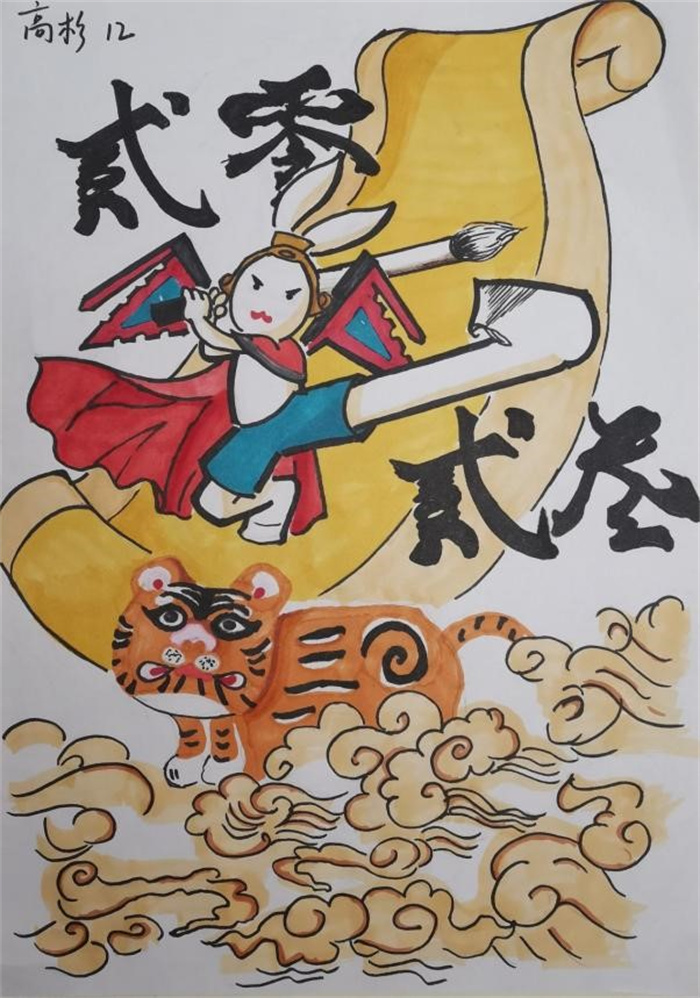 高杉 12
贰零
贰叁